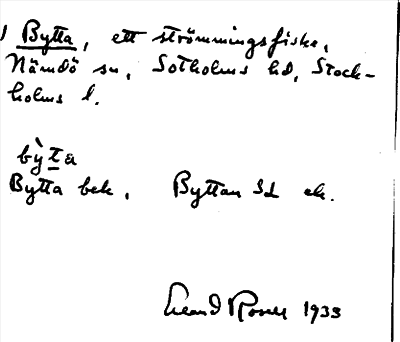 ) Bytta, ett strömmingsfiske,
Nämdö sn, Sotholms hd, Stock-
holms l.
bỳta
Bytta bek. Byttan Sd ek.
1933